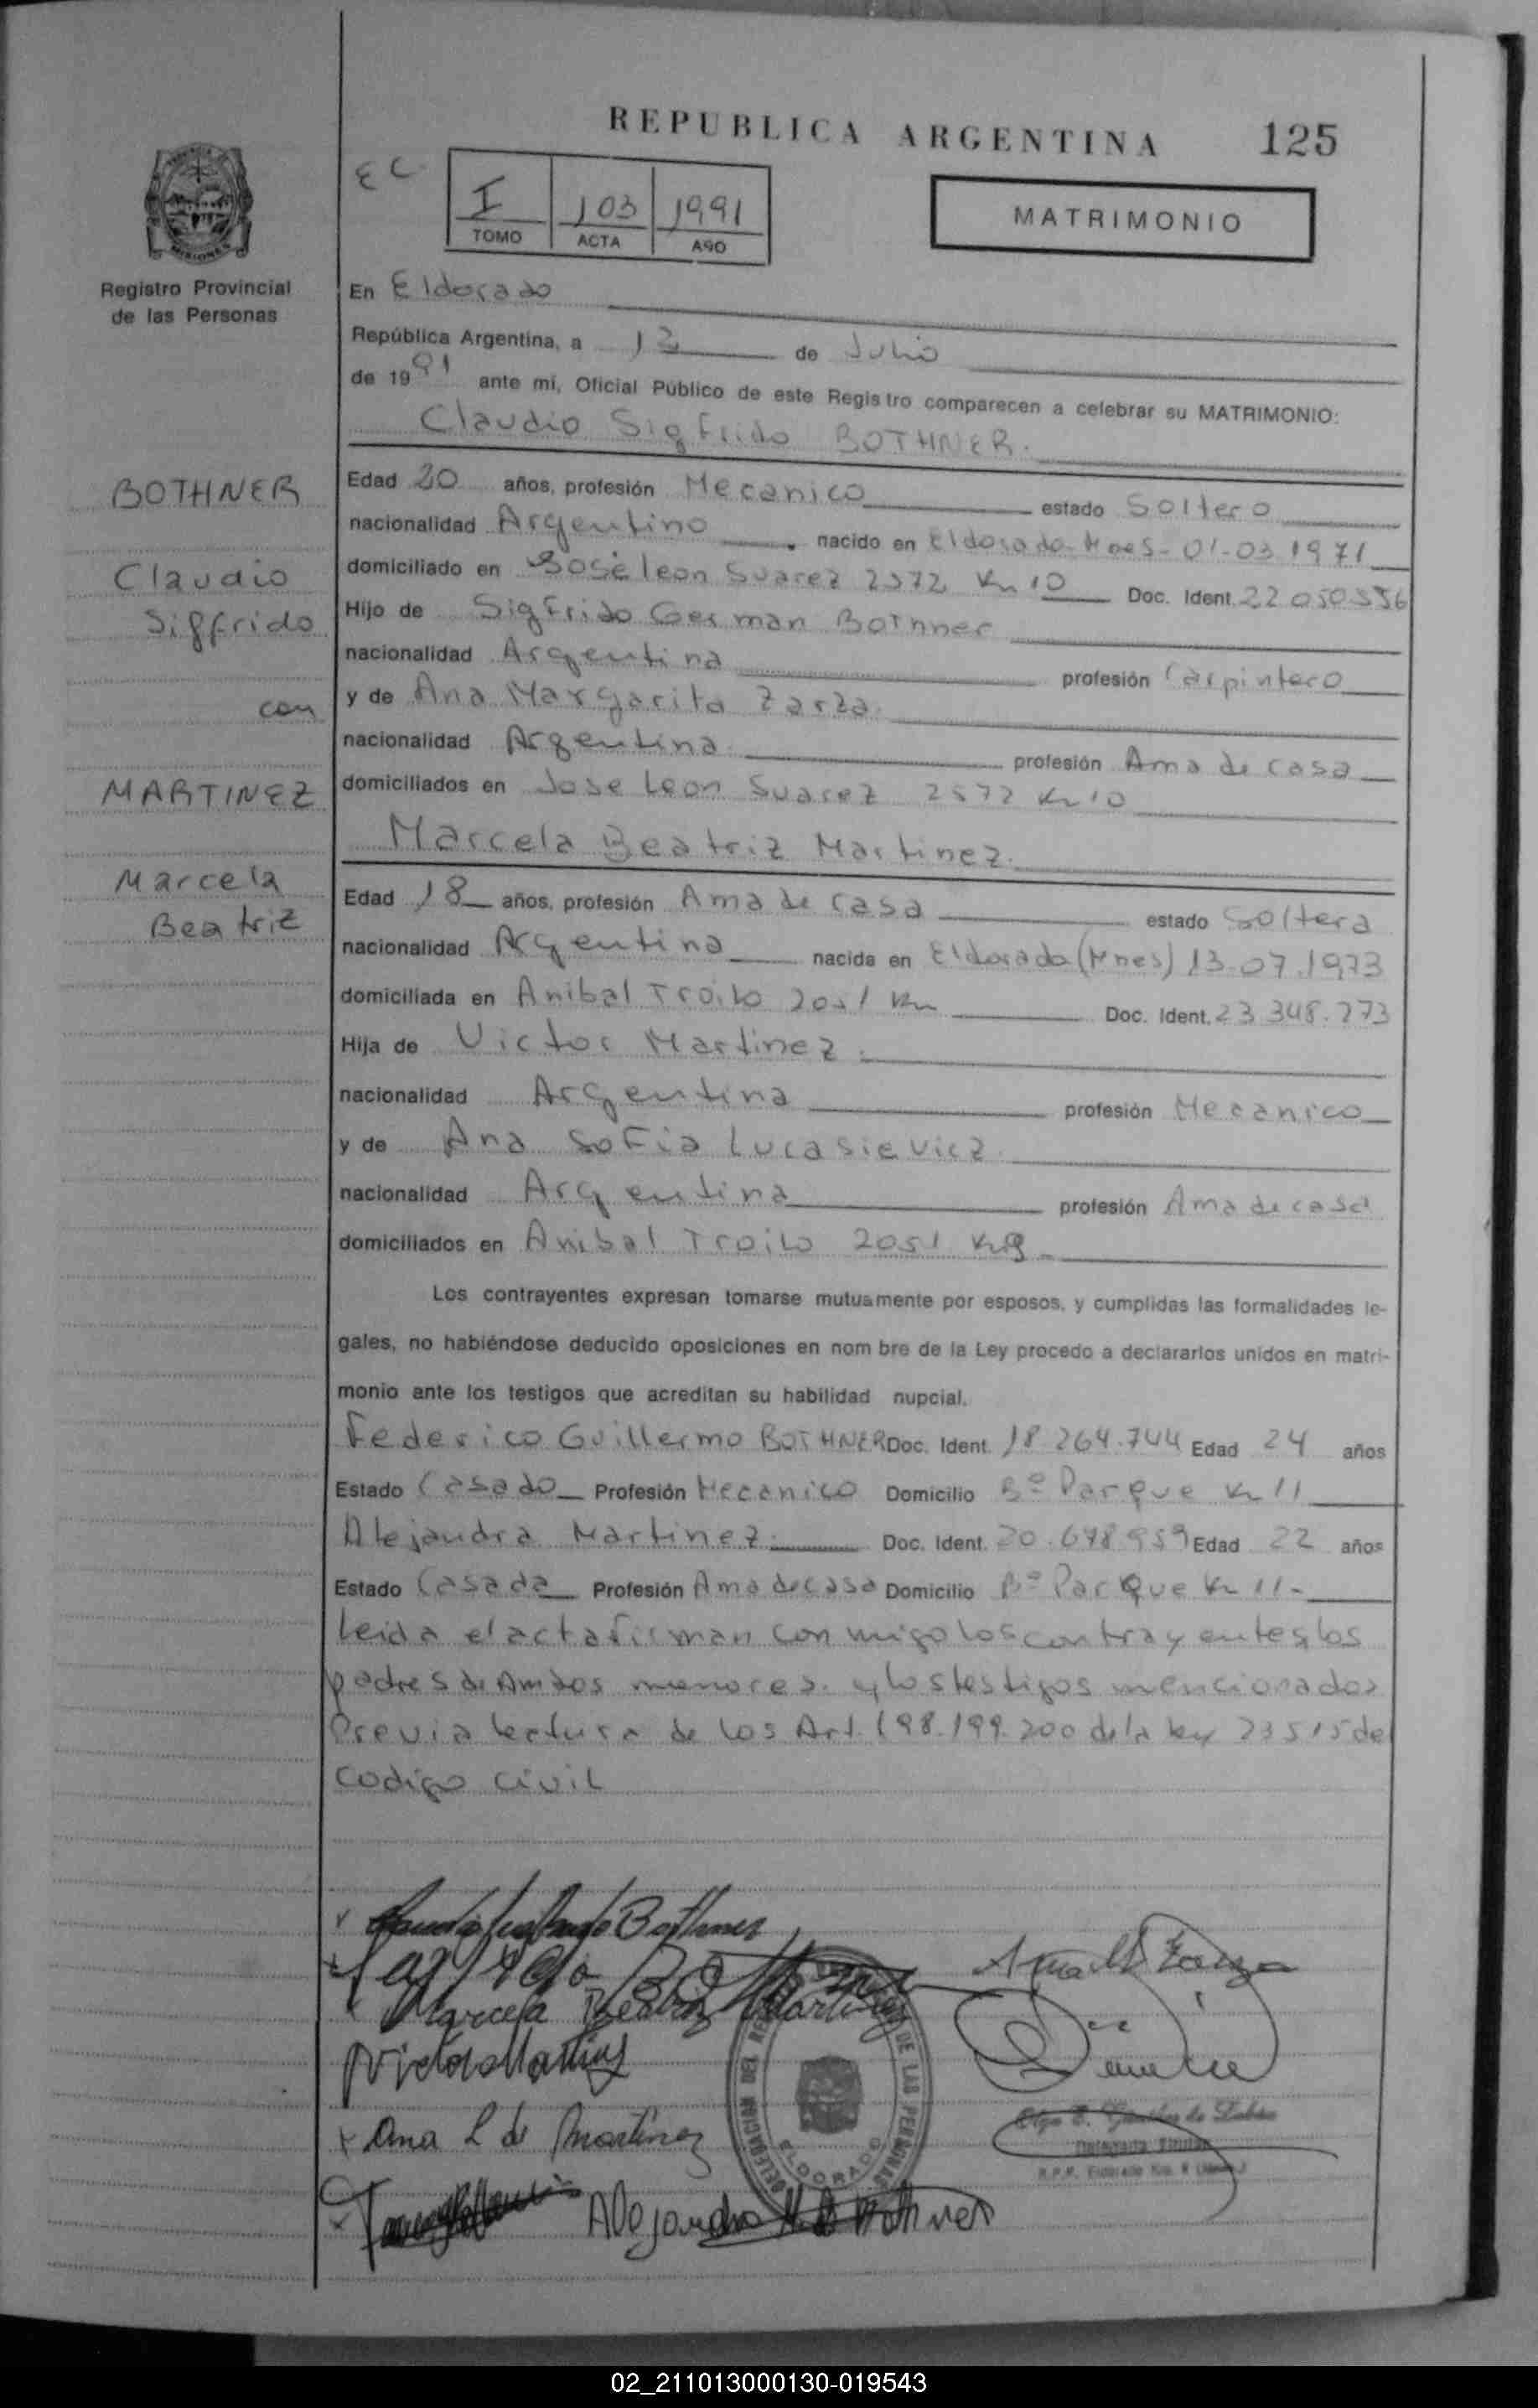 REPUBLICA ARGENTINA 125
EC
I 103 1991
TOMO ACTA AÑO
MATRIMONIO
Registro Provincial
de las Personas
En Eldorado
República Argentina, a 12 de Julio
de 1991 ante mi, Oficial Público de este Registro comparecen a celebrar su MATRIMONIO:
Claudio Sigfrido BOTHNER.
BOTHNER
Claudio
Sigfrido
con
MARTINEZ
Marcela
Beatriz
Edad 20 años, profesión Mecanico estado Soltero
nacionalidad Argentino nacido en Eldorado-Mnes-01-03 1971
domiciliado en José leon Suarez 2572 Km 10 Doc. Ident. 22 050556
Hijo de Sigfrido German Bothner
nacionalidad Argentina profesión Carpintero
y de Ana Margarita Zarza.
nacionalidad Argentina profesión Ama de casa
domiciliados en Jose Leon Suarez 2572 Km 10
Marcela Beatriz Martinez.
Edad 18 años, profesión Ama de casa estado Soltera
nacionalidad Argentina nacida en Eldorado (Mnes) 13-07.1973
domiciliada en Anibal Troilo 2051 Km Doc. Ident. 23 348.273
Hija de Victor Martinez.
nacionalidad Argentina profesión Mecanico
y de Ana Sofia Lucasievicz.
nacionalidad Argentina profesión Ama de casa
domiciliados en Anibal Troilo 2051 Km 9
Los contrayentes expresan tomarse mutuamente por esposos, y cumplidas las formalidades le-
gales, no habiéndose deducido oposiciones en nom bre de la Ley procedo a declararlos unidos en matri-
monio ante los testigos que acreditan su habilidad nupcial.
Federico Guillermo BOTHNER Doc. Ident. 18 264.744 Edad 24 años
Estado Casado Profesión Mecanico Domicilio Bº Parque Km 11
Alejandra Martinez. Doc. Ident. 20.678 959 Edad 22 años
Estado Casada Profesión Ama de casa Domicilio Bº Parque Km 11-
Leida el acta firman con migo los contrayentes, los
padres de Ambos menores. y los testigos mencionados
Previa lectura de los Art. 198.199.200 de la ley 23515 del
Codigo Civil
Bothner
Ana M Zarza
Marcela Beatriz Martinez
Victor Martinez
Ana L de Martinez
Alejandra M de Bothner
DELEGACION DEL REG DE LAS PERSONAS
ELDORADO
Olga E.
Delegada Titular
R.P.P. Eldorado
02_211013000130-019543